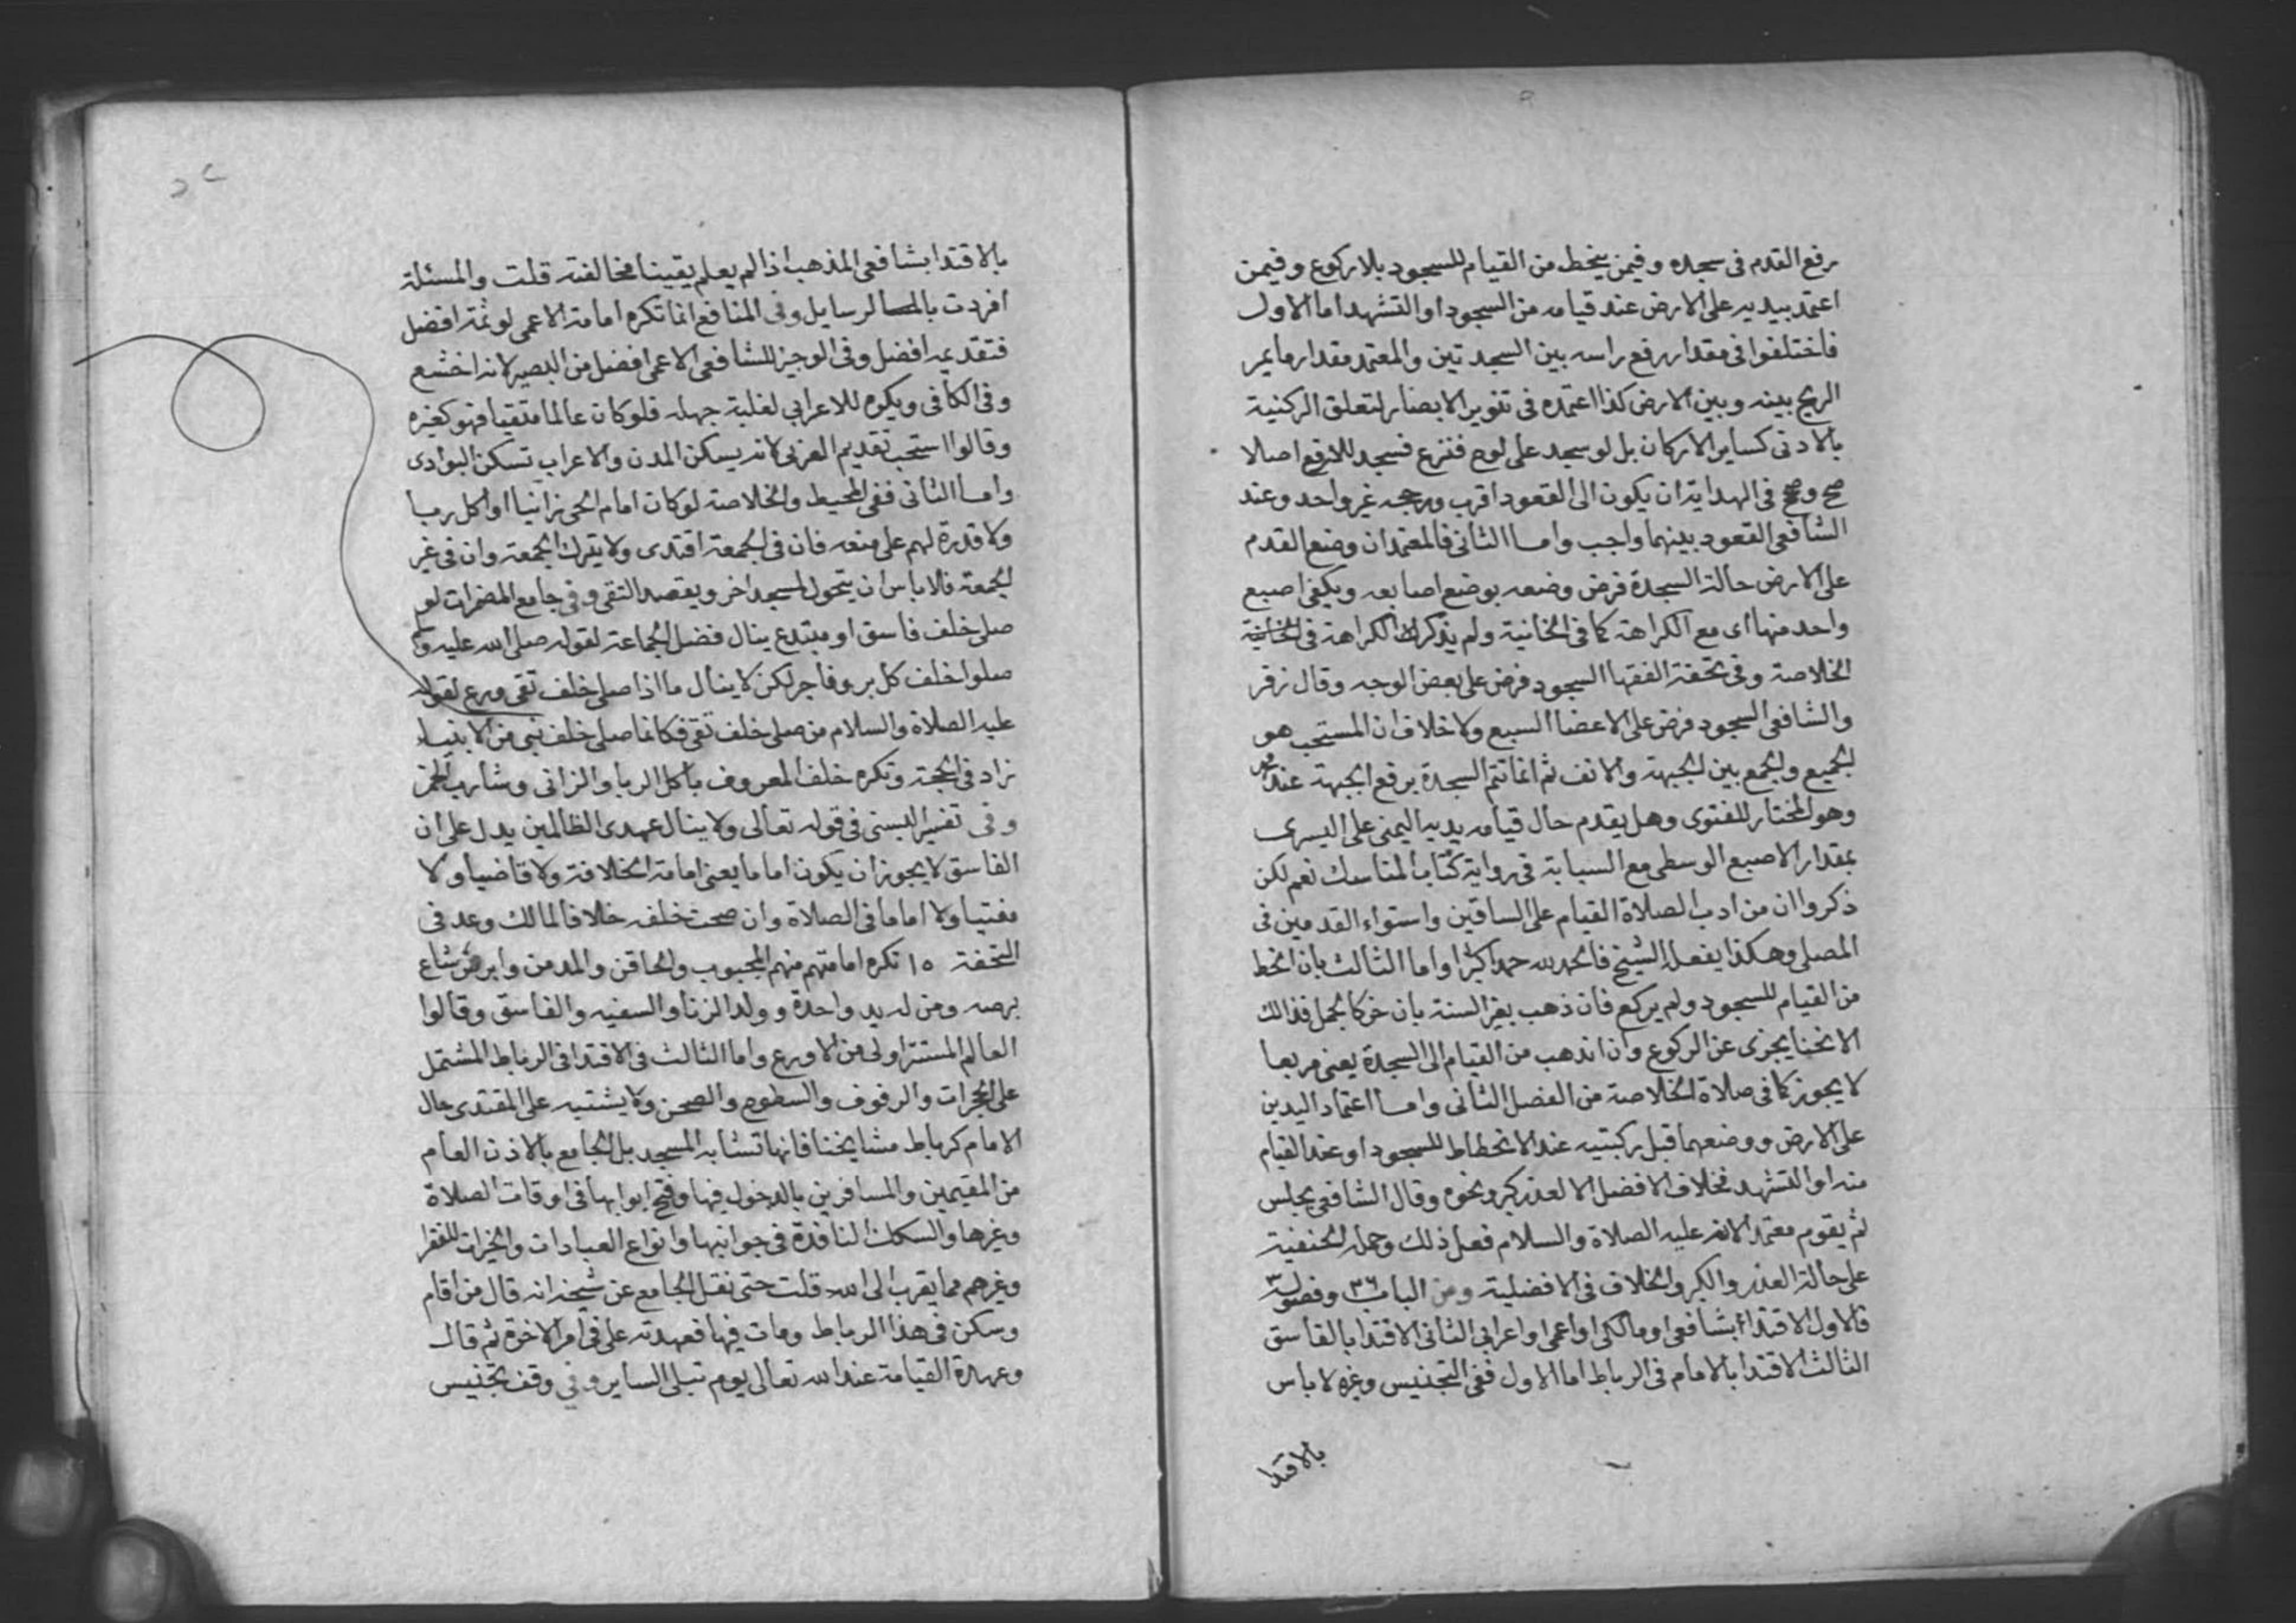 رفع القدم فى سجده وفيمن ينخط من القيام للسجود بلا ركوع وفيمن
اعتمد بيديه على الارض عند قيامه من السجود او التشهد اما الاول
فاختلفوا فى مقدار رفع راسه بين السجدتين والمعتمد مقدار ما يمر
الريح بينه وبين الارض كذا اعتمده فى تنوير الابصار لتعلق الركنية
بالادنى كساير الاركان بل لو سجد على لوح فنزع فسجد للارفع اصلا
صح وصح فى الهداية ان يكون الى القعود اقرب ورجحه غير واحد وعند
الشافعى القعود بينهما واجب واما الثانى فالمعتمد ان وضع القدم
على الارض حالة السجدة فرض وضعه بوضع اصابعه ويكفى اصبع
واحد منها اى مع الكراهة كما فى الخانية ولم يذكر الكراهة فى
الخلاصة وفى تحفة الفقها السجود فرض على بعض الوجه وقال زفر
والشافعى السجود فرض على الاعضا السبع ولا خلاف ان المستحب هو
الجميع والجمع بين الجبهة والانف ثم انما تتم السجدة برفع الجبهة عند محمد
وهو المختار للفتوى وهل يقدم حال قيامه يديه اليمنى على اليسرى
بمقدار الاصبع الوسطى مع السبابة فى رواية كتاب المناسك نعم لكن
ذكروا ان من ادب الصلاة القيام على الساقين واستواء القدمين فى
المصلى وهكذا يفعل الشيخ فالحمد لله حمدا كثرا واما الثالث بان انخط
من القيام للسجود ولم يركع فان ذهب بغير السنة بان خر كالجمل فذالك
الانحنا يجزى عن الركوع وان انذهب من القيام الى السجدة يعنى مربعا
لا يجوز كما فى صلاة الخلاصة من الفصل الثانى واما اعتماد اليدين
على الارض ووضعهما قبل ركبتيه عند الانحطاط للسجود او عند القيام
منه او التشهد فخلاف الافضل الا لعذر كبر ونحوه وقال الشافعى يجلس
ثم يقوم معتمدا لانه عليه الصلاة والسلام فعل ذلك وحمله الحنفية
على حالة العذر والكبر والخلاف فى الافضلية ومن الباب ٣٦ وفصوله ٣
فالاول الاقتداء بشافعى او مالكى او اعمى او اعرابى الثانى الاقتدا بالفاسق
الثالث الاقتدا بالامام فى الرباط اما الاول ففى التجنيس وغيره لا باس
بالاقتدا
بالاقتدا بشافعى المذهب اذا لم يعلم يقينا مخالفته قلت والمسئلة
افردت بالرسايل وفى المنافع انما تكره امامة الاعمى لو ثمة افضل
فتقديمه افضل وفى الوجيز للشافعى الاعمى افضل من البصير لانه اخشع
وفى الكافى ويكره للاعرابى لغلبة جهله فلو كان عالما متقيا فهو كغيره
وقالوا استحب تقديم العربى لانه يسكن المدن والاعراب تسكن البوادى
واما الثانى ففى المحيط والخلاصة لو كان امام الحى زانيا او اكل ربا
ولا قدرة لهم على منعه فان فى الجمعة اقتدى ولا يترك الجمعة وان فى غير
الجمعة فلا باس ان يتحول لمسجد اخر ويقصد التقى وفى جامع المضمرات لو
صلى خلف فاسق او مبتدع ينال فضل الجماعة لقوله صلى الله عليه وسلم
صلوا خلف كل بر وفاجر لكن لا ينال ما اذا صلى خلف تقى ورع لقوله
عليه الصلاة والسلام من صلى خلف تقى فكانما صلى خلف نبى من الانبياء
زاد فى الحجة وتكره خلف المعروف باكل الربا والزانى وشارب الخمر
وفى تفسير البستى فى قوله تعالى ولا ينال عهدى الظالمين يدل على ان
الفاسق لا يجوز ان يكون اماما يعنى امامة الخلافة ولا قاضيا ولا
مفتيا ولا اماما فى الصلاة وان صحت خلفه خلافا لمالك وعد فى
التحفة ١٥ تكره امامتهم منهم المجبوب والحاقن والمدمن وابرص شاع
برصه ومن له يد واحدة وولد الزنا والسفيه والفاسق وقالوا
العالم المستتر اولى من الاورع واما الثالث فى الاقتدا فى الرباط المشتمل
على الحجرات والرفوف والسطوح والصحن ولا يشتبه على المقتدى حال
الامام كرباط مشايخنا فانها تشابه المسجد بل الجامع بالاذن العام
من المقيمين والمسافرين بالدخول فيها وفتح ابوابها فى اوقات الصلاة
وغيرها والسكك النافذة فى جوانبها وانواع العبادات والخيرات للفقرا
وغيرهم مما يقرب الى الله قلت حتى نقل الجامع عن شيخه انه قال من اقام
وسكن فى هذا الرباط ومات فيها فعهدته على فى امر الاخرة ثم قال
وعهدة القيامة عند الله تعالى يوم تبلى السراير وفى وقف تجنيس